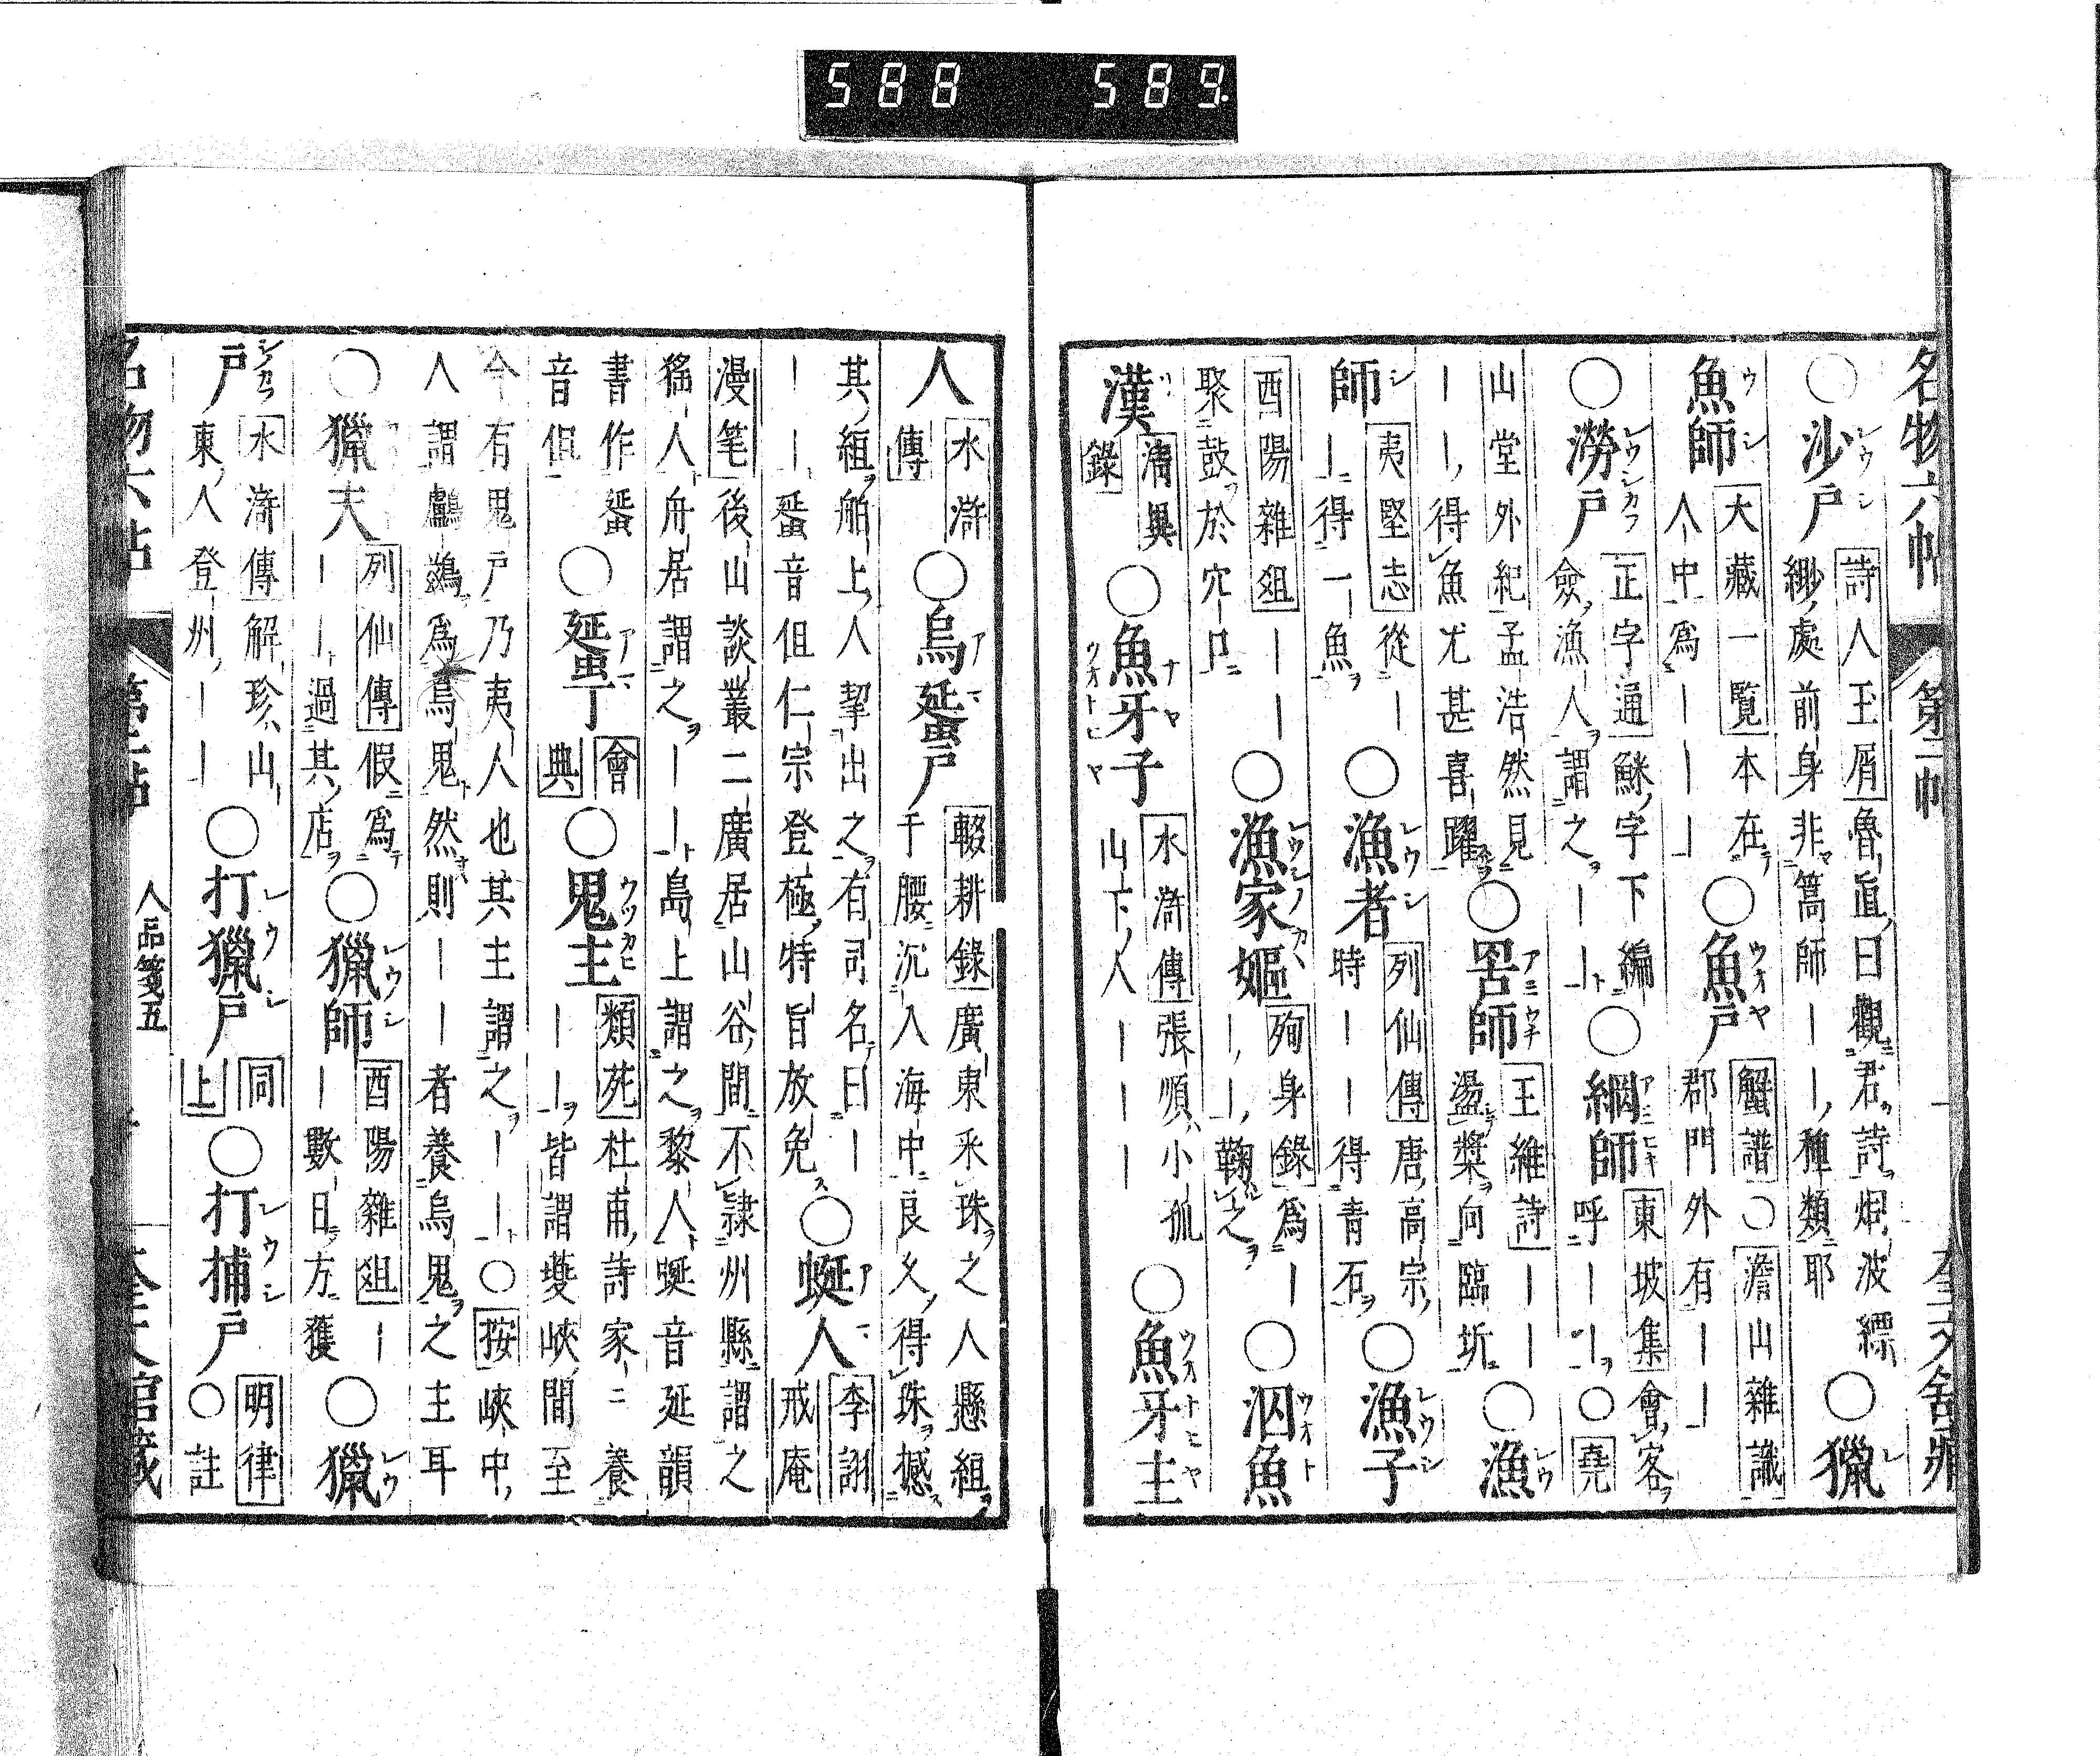 588 589
名物六帖 第二帖
○沙戶 詩人玉屑 魯直曰觀君詩烟波縹
緲處前身非篙師ーー種類耶 ○獵
魚師 大藏一覽 本在
人中爲ーーー ○魚戶 蟹譜 ○澹山雜識
郡門外有ーー
○澇戶 正字通 鮴字下編
僉漁人謂之ーー ○網師 東坡集 會客
呼ーー ○堯
山堂外紀 孟浩然見
ーー得魚尤甚喜躍 ○罟師 王維詩 ーー
盪槳向臨圻 ○漁
師 夷堅志 從ー
ー得一魚 ○漁者 列仙傳 唐高宗
時ーー得青石 ○漁子
酉陽雜俎 ーー
聚鼓於穴口 ○漁家嫗 殉身錄 爲ー
ーー鞠之 ○泅魚
漢 淸異
錄 ○魚牙子 水滸傳 張順小孤
山下人ーーー ○魚牙主
人 水滸
傳 ○烏蜑戶 輟耕錄 廣東采珠之人懸絙
于腰沉入海中良久得珠撼
其絙舶上人挈出之有司名曰ー
ーー蜑音但仁宗登極特旨放免 ○蜒人 李詡
戒庵
漫笔 後山談叢二廣居山谷間不隷州縣謂之
猺人舟居謂之ーー島上謂之黎人蜒音延韻
書作蜑
音但 ○蜑丁 會
典 ○鬼主 類苑 杜甫詩家ニ養
ーー皆謂夔峽間至
今有鬼戶乃夷人也其主謂之ーー○按峽中
人謂鸕鷀爲烏鬼然則ーー者養烏鬼之主耳
○獵夫 列仙傳 假爲
ーー過其店 ○獵師 酉陽雜俎 ー
ー數日方獲 ○獵
戶 水滸傳 解珍山
東人登州ーー ○打獵戶 同
上 ○打捕戶 明律
○註
名物六帖 第二帖 人品箋五